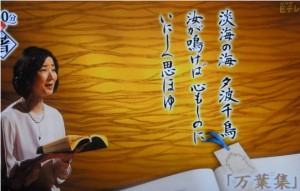 淡海の海 夕波千鳥
汝が鳴けば 心もしのに
いにしへ思ほゆ
「万葉集」